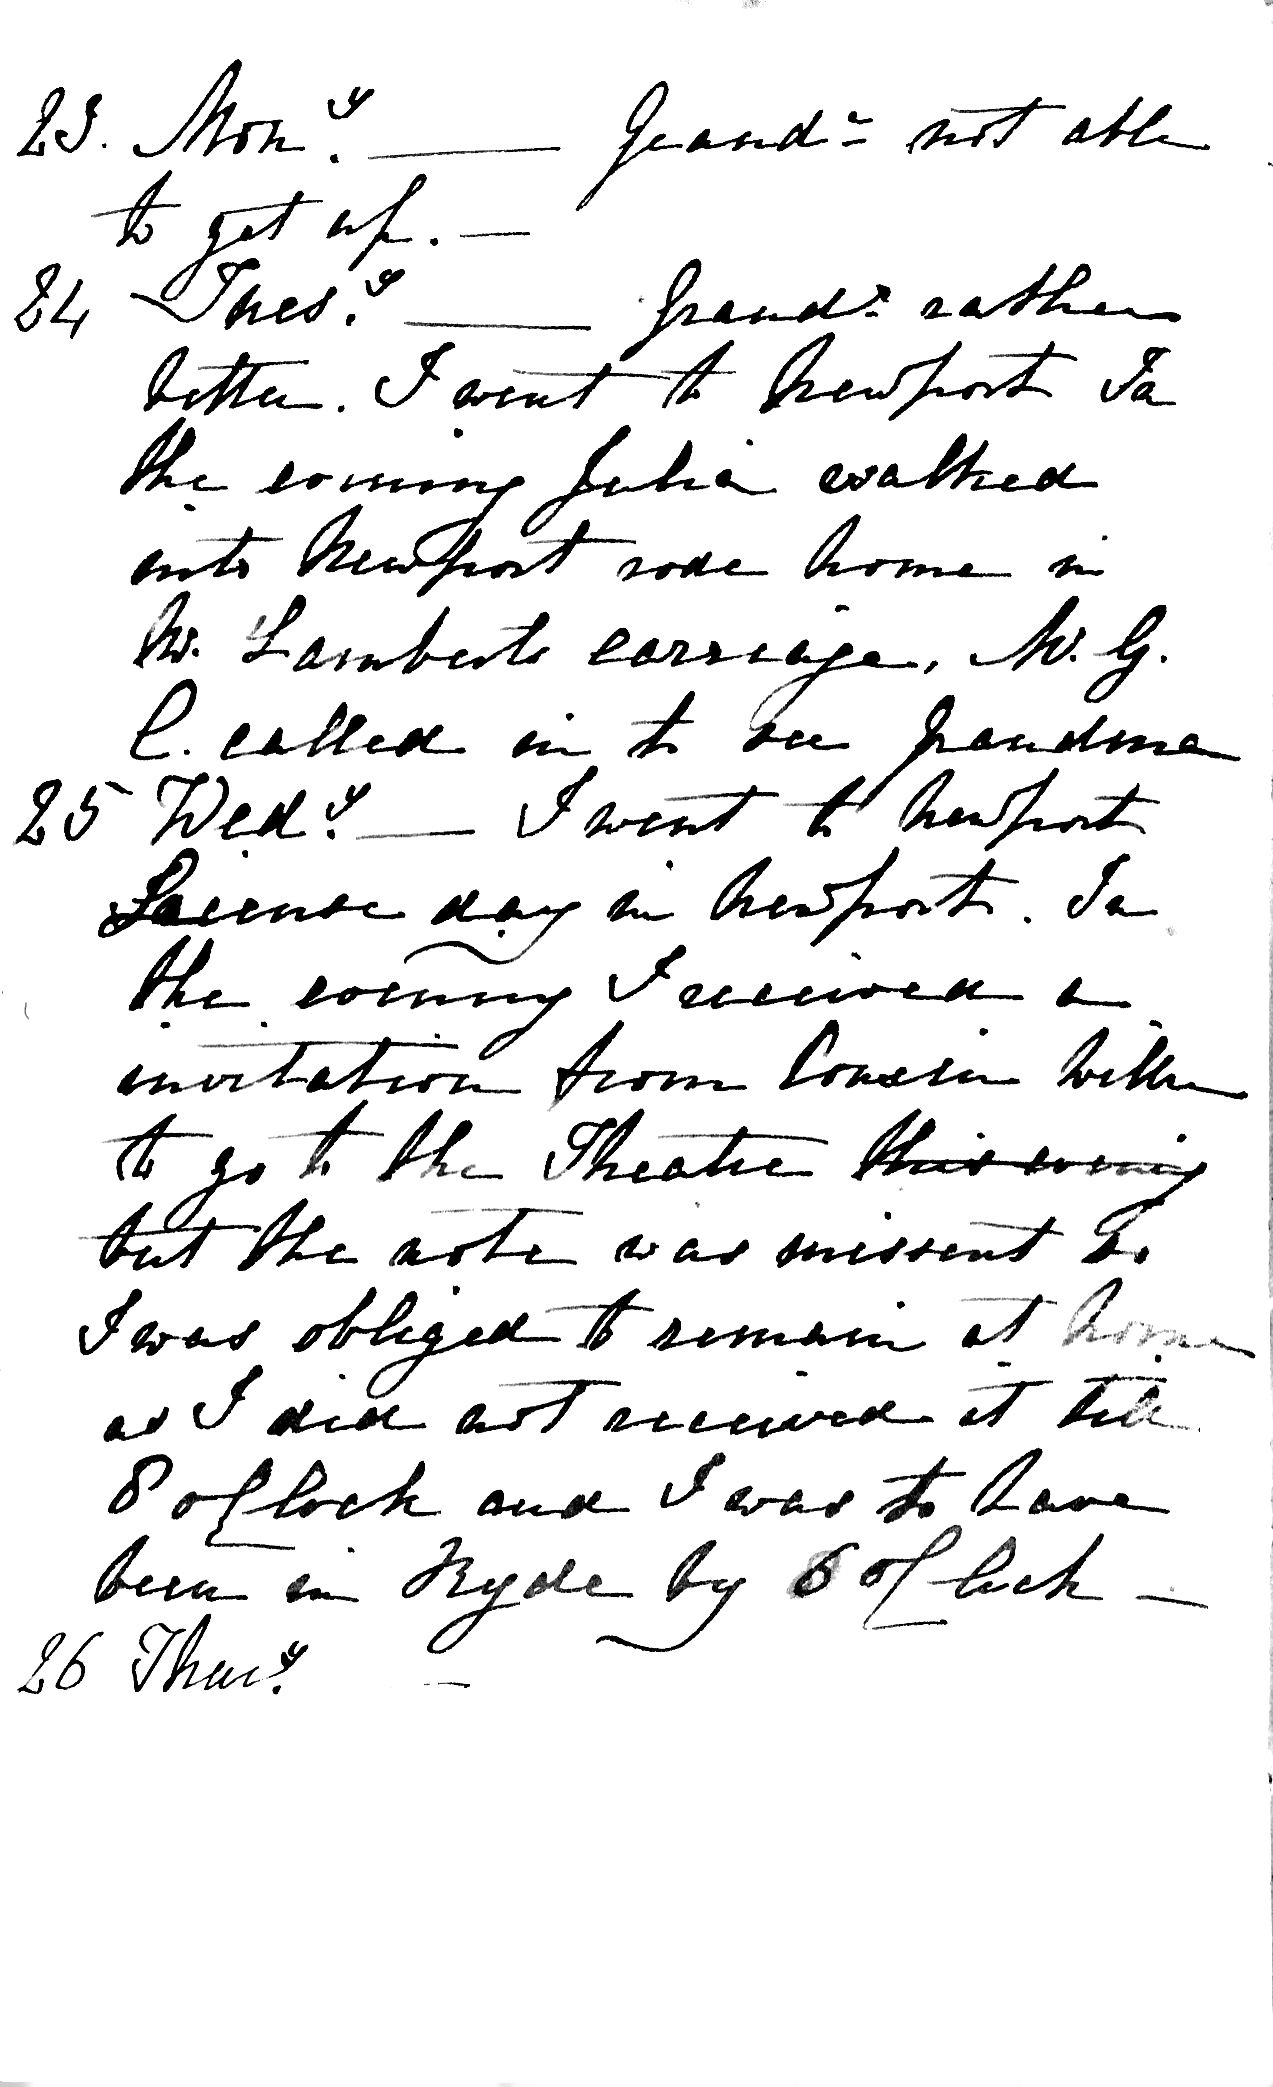 23. Mony. — Granda not able
to get up. —
24 Tuesy. — Granda rather
better. I went to Newport In
the evening Julia walked
into Newport rode home in
W. Lamberts carriage, W. G.
C. called in to see Grandma
25 Wedy. — I went to Newport
License day in Newport. In
the evening I received a
invitation from Cousin Willm
to go to the Theatre this evening
but the note was missent So
I was obliged to remain at home
as I did not received it till
8 o/Clock and I was to have
been in Ryde by 6 o/Clock —
26 Thury. —